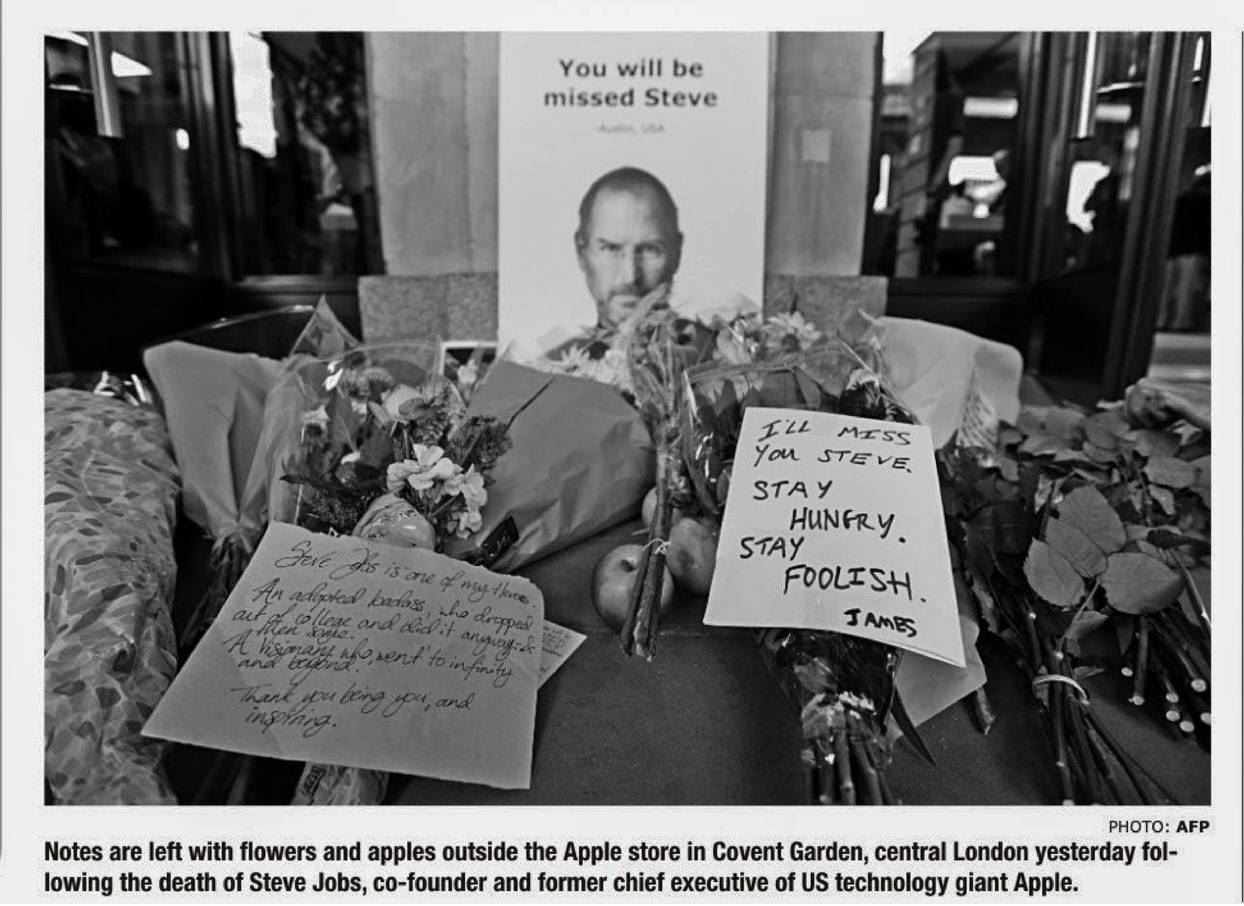 You will be
missed Steve
-Austin, USA
I'LL MISS
YOU STEVE.
STAY
HUNGRY.
STAY
FOOLISH.
JAMES
Steve Jobs is one of my Heroes.
An adopted badass, who dropped
out of college and did it anyway &
then some.
A visionary who, went to infinity
and beyond.
Thank you being you, and
inspiring.
PHOTO: AFP
Notes are left with flowers and apples outside the Apple store in Covent Garden, central London yesterday fol-
lowing the death of Steve Jobs, co-founder and former chief executive of US technology giant Apple.